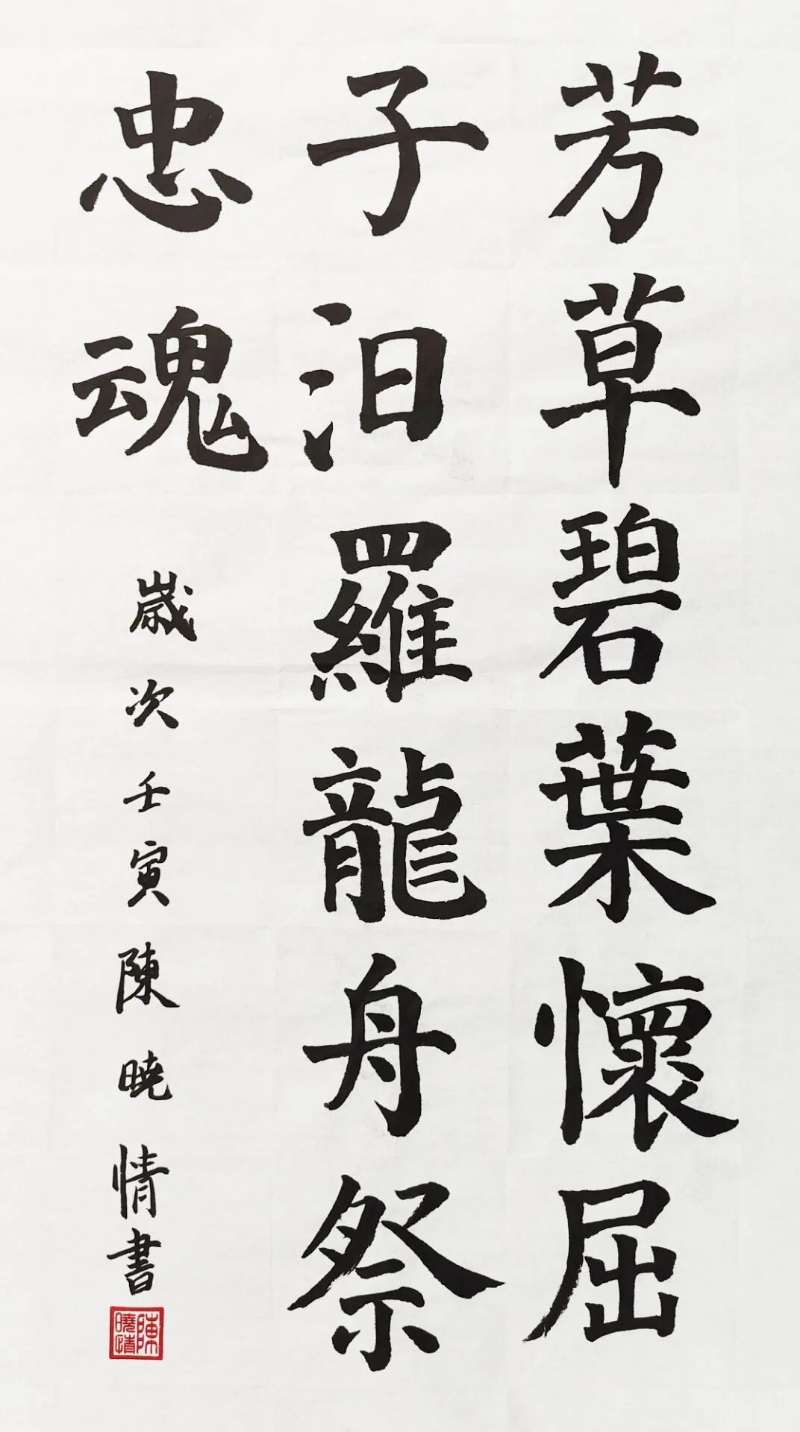 芳草碧葉懷屈
子汨羅龍舟祭
忠魂
歲次壬寅陳曉情書
陳曉情